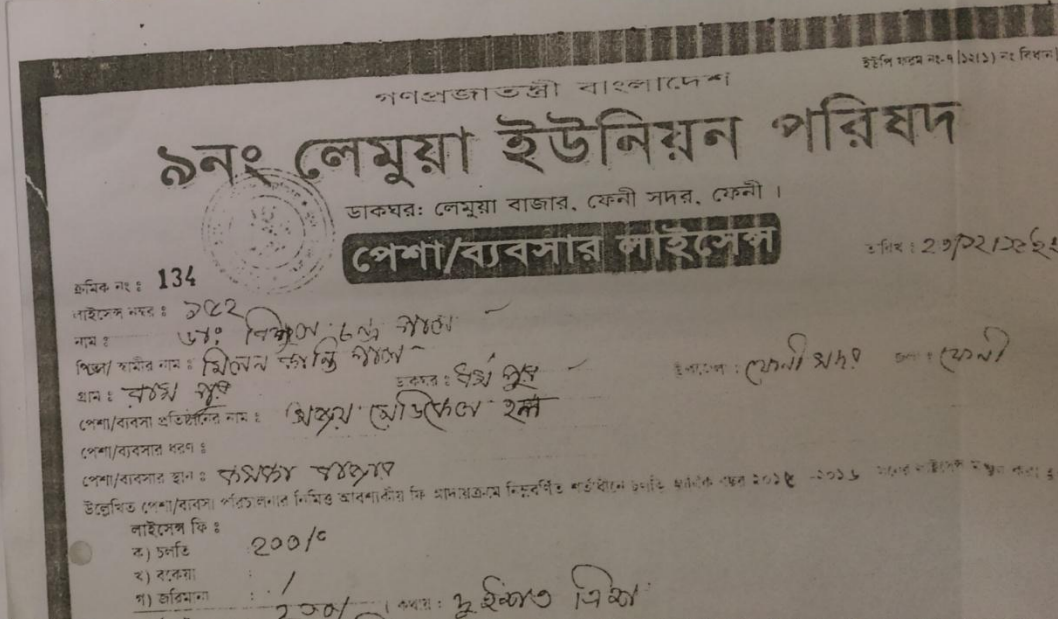 ইউপি ফরম নং-৭ [১২(১) নং বিধান]
গণপ্রজাতন্ত্রী বাংলাদেশ
৯নং লেমুয়া ইউনিয়ন পরিষদ
ডাকঘর: লেমুয়া বাজার, ফেনী সদর, ফেনী ।
পেশা/ব্যবসার লাইসেন্স
তারিখ :
ক্রমিক নং : 134
লাইসেন্স নম্বর : ১৫২
নাম : ডাঃ চন্দ্র পাল
পিতা/ স্বামীর নাম : মিলন কান্তি পাল
গ্রাম : রাম পুর ডাকঘর : ধর্ম পুর উপজেলা : ফেনী সদর জেলা : ফেনী
পেশা/ব্যবসা প্রতিষ্ঠানের নাম : মেডিকেল হল
পেশা/ব্যবসার ধরণ :
পেশা/ব্যবসার স্থান : বাজার
উল্লেখিত পেশা/ব্যবসা পরিচালনার নিমিত্ত আবশ্যকীয় ফি আদায়ক্রমে নিম্নবর্ণিত শর্তাধীনে চলতি আর্থিক বছর ২০১৫ -২০১৬ সনের লাইসেন্স মঞ্জুর করা
লাইসেন্স ফি :
ক) চলতি ২০০/০
খ) বকেয়া :
গ) জরিমানা :
( কথায় : দুইশত ত্রিশ